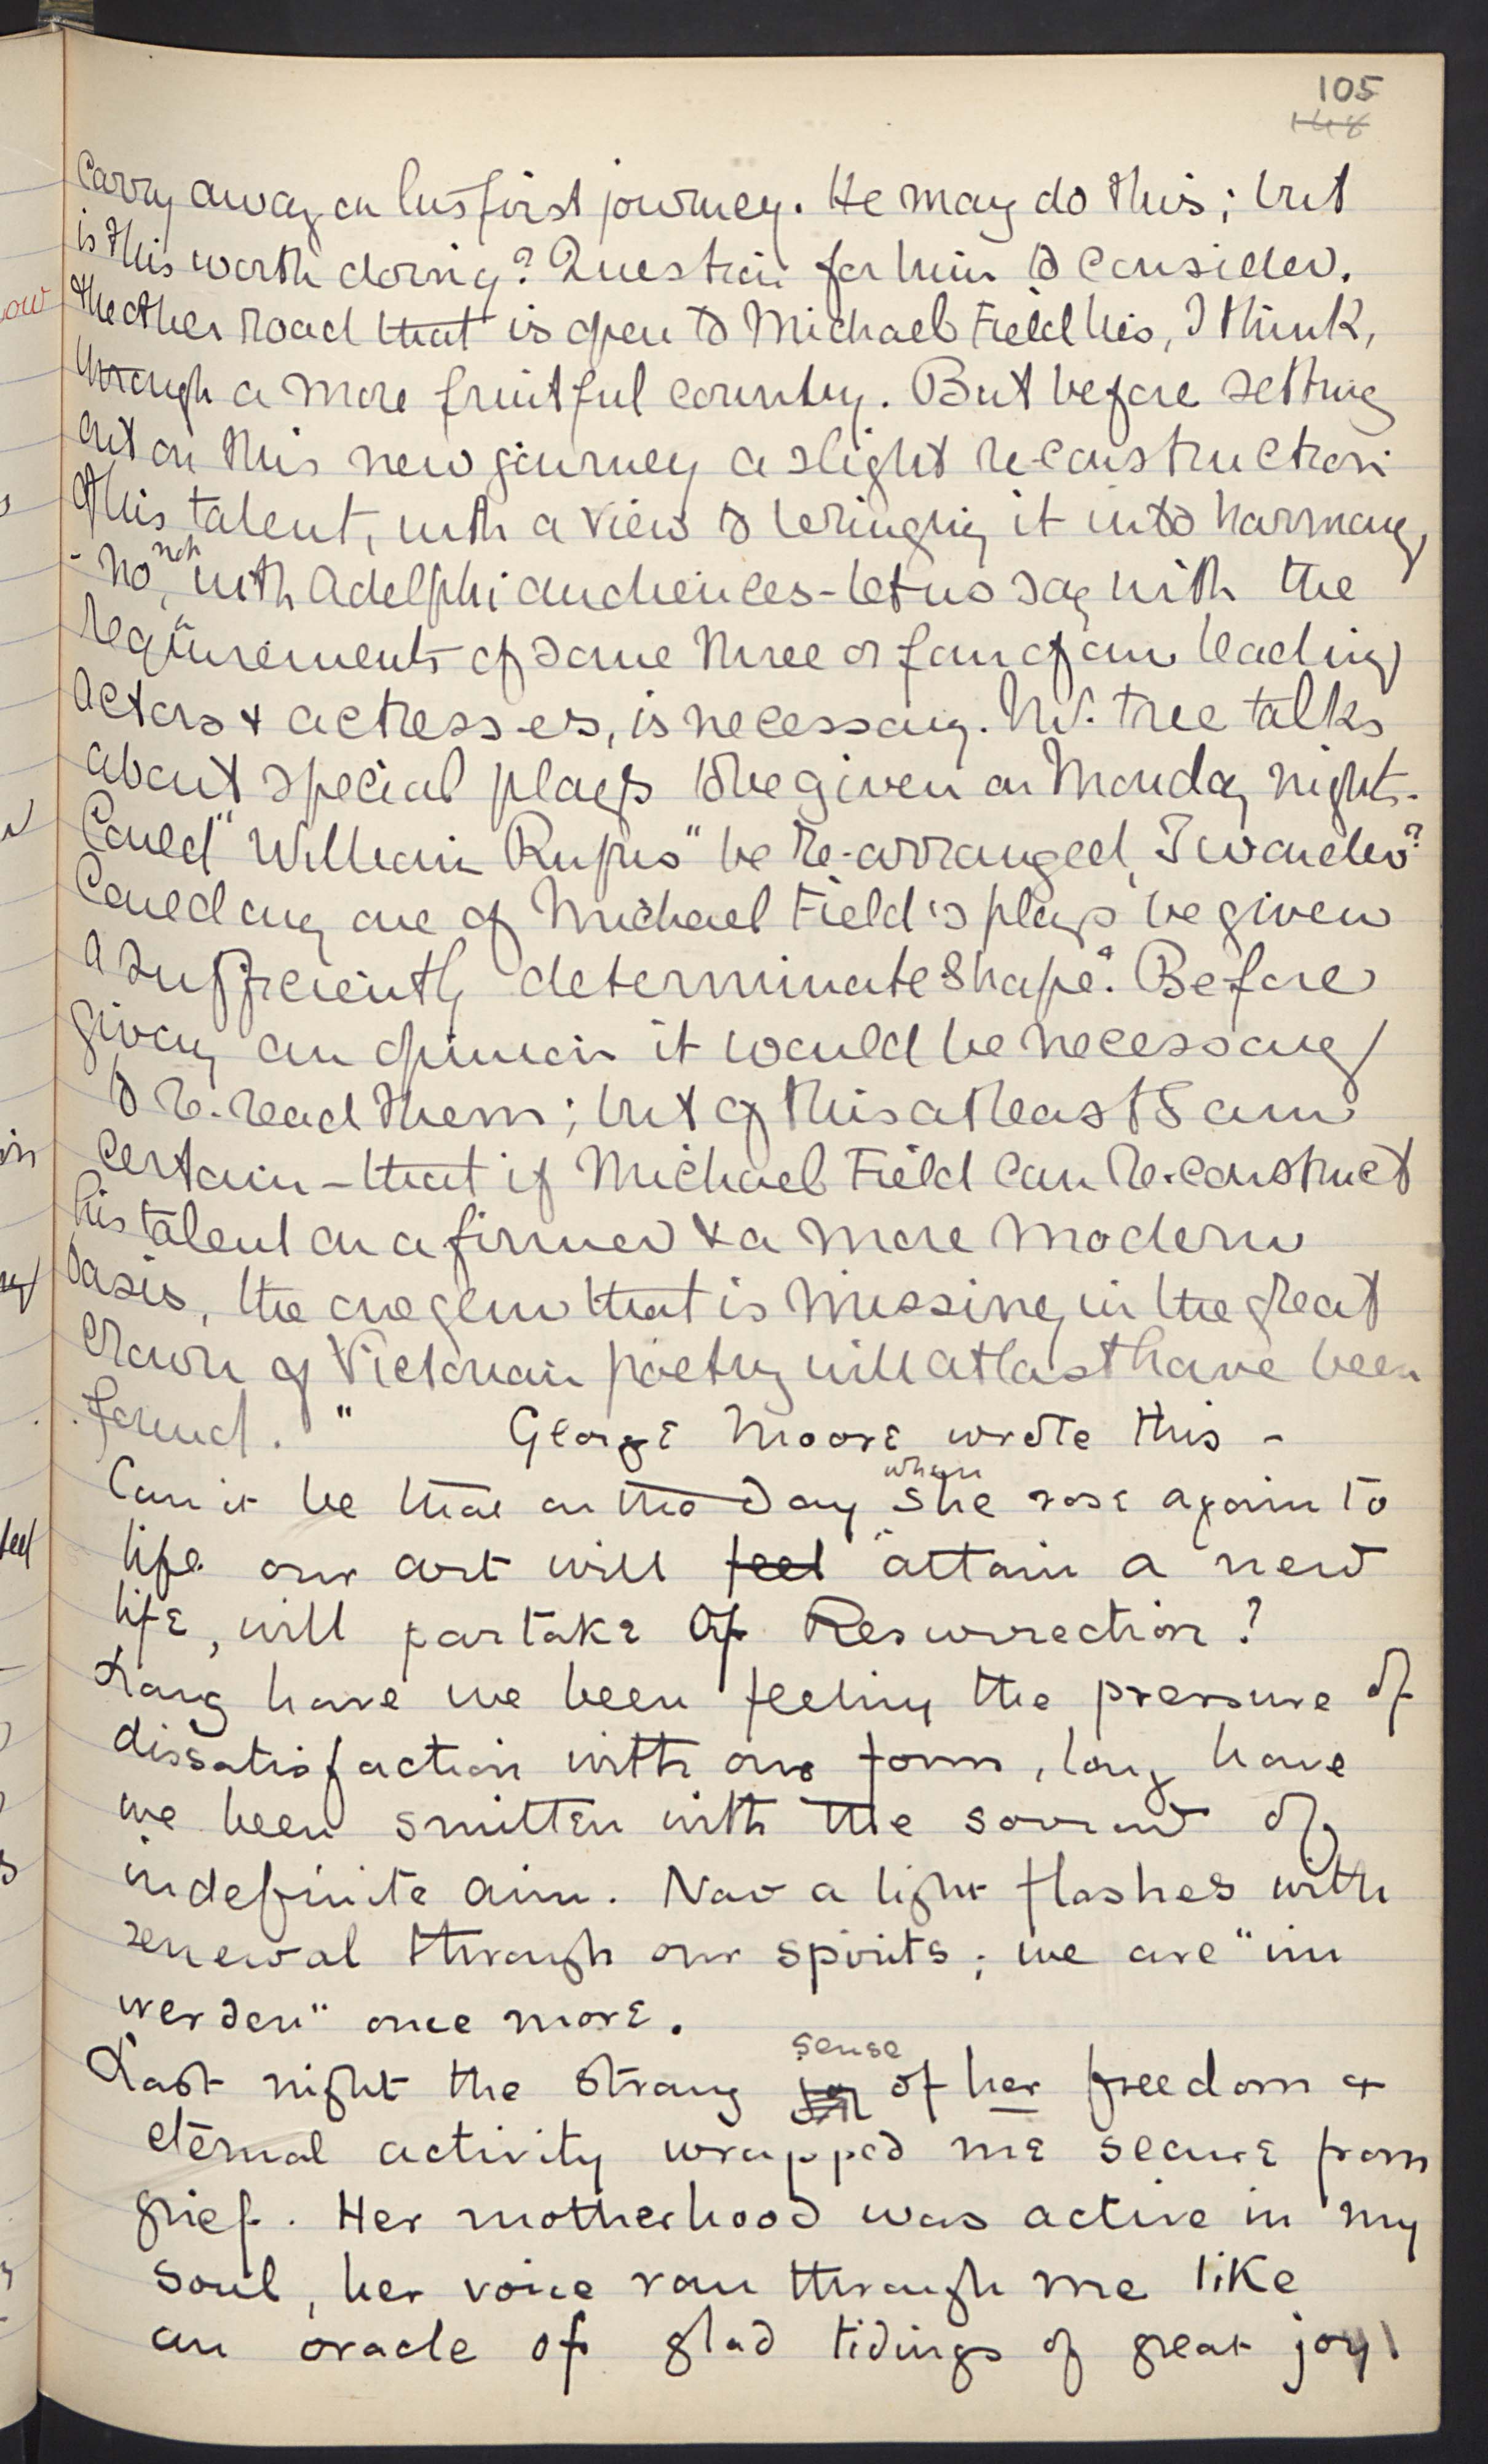 105
148
carry away on his first journey. He may do this; but
is this worth doing? Question for him to consider.
The other road that is open to Michael Field lies, I think,
through a more fruitful country. But before setting
out on this new journey a slight re-construction
of his talent, with a view to bringing it into harmony,
- no, not with Adelphi audiences - let us say with the
requirements of some three or four of our leading
actors & actresses, is necessary. Mr. Tree talks
about special plays to be given on Monday nights.
Could "William Rufus" be re-arranged, I wonder?
Could any one of Michael Field's plays be given
a sufficiently determinate shape? Before
giving an opinion it would be necessary
to re-read them; but of this at least I am
certain - that if Michael Field can re-construct
his talent on a firmer & a more modern
basis, the one gem that is missing in the great
crown of Victorian poetry will at last have been
found." George Moore wrote this -
Can it be that on the day when she rose again to
life our art will feel attain a new
life, will partake of Resurrection?
Long have we been feeling the pressure of
dissatisfaction with our form, long have
we been smitten with the sorrow of
indefinite aim. Now a light flashes with
renewal through our spirits; we are "im
werden" once more.
Last night the strong joy sense of her freedom &
eternal activity wrapped me secure from
grief. Her motherhood was active in my
soul, her voice ran through me like
an oracle of glad tidings of great joy!